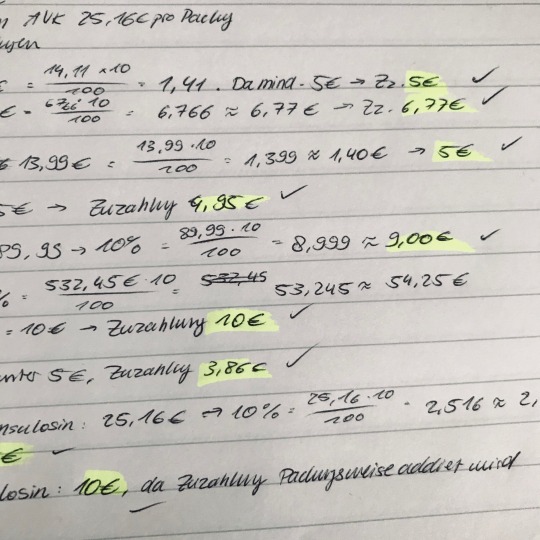 AVK 25,16€ pro Packg
€ = 14,11 x 10 / 100 = 1,41. Da mind. 5€ → Zz. 5€ ✓
€ = 67,66 · 10 / 100 = 6,766 ≈ 6,77€ → Zz. 6,77€ ✓
13,99€ = 13,99 · 10 / 100 = 1,399 ≈ 1,40€ → 5€ ✓
5€ → Zuzahlung 4,95€ ✓
89,99 → 10% = 89,99 · 10 / 100 = 8,999 ≈ 9,00€ ✓
% = 532,45€ · 10 / 100 = 532,45 53,245 ≈ 54,25€
= 10€ → Zuzahlung 10€ ✓
unter 5€, Zuzahlung 3,86€ ✓
nsulosin: 25,16€ → 10% = 25,16 · 10 / 100 = 2,516 ≈ 2,
€ ✓
losin: 10€, da Zuzahlung Packungsweise addiert wird ✓